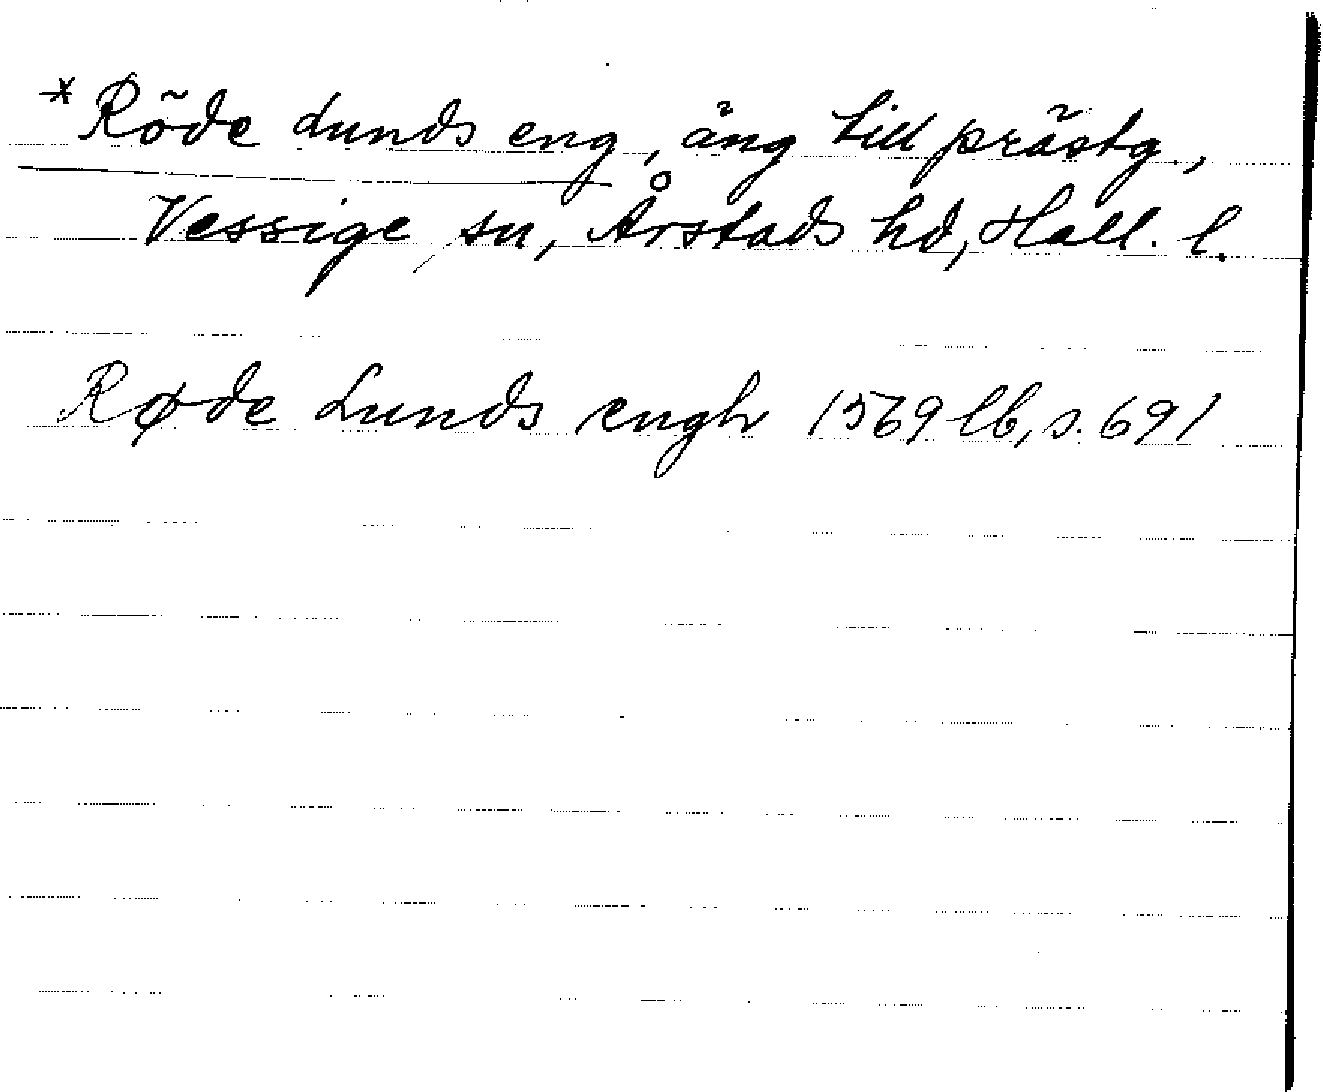 * Röde Lunds eng, äng till prästg.,
Vessige sn, Årstads hd, Hall. l.
Røde Lunds engh 1569 lb, s. 691